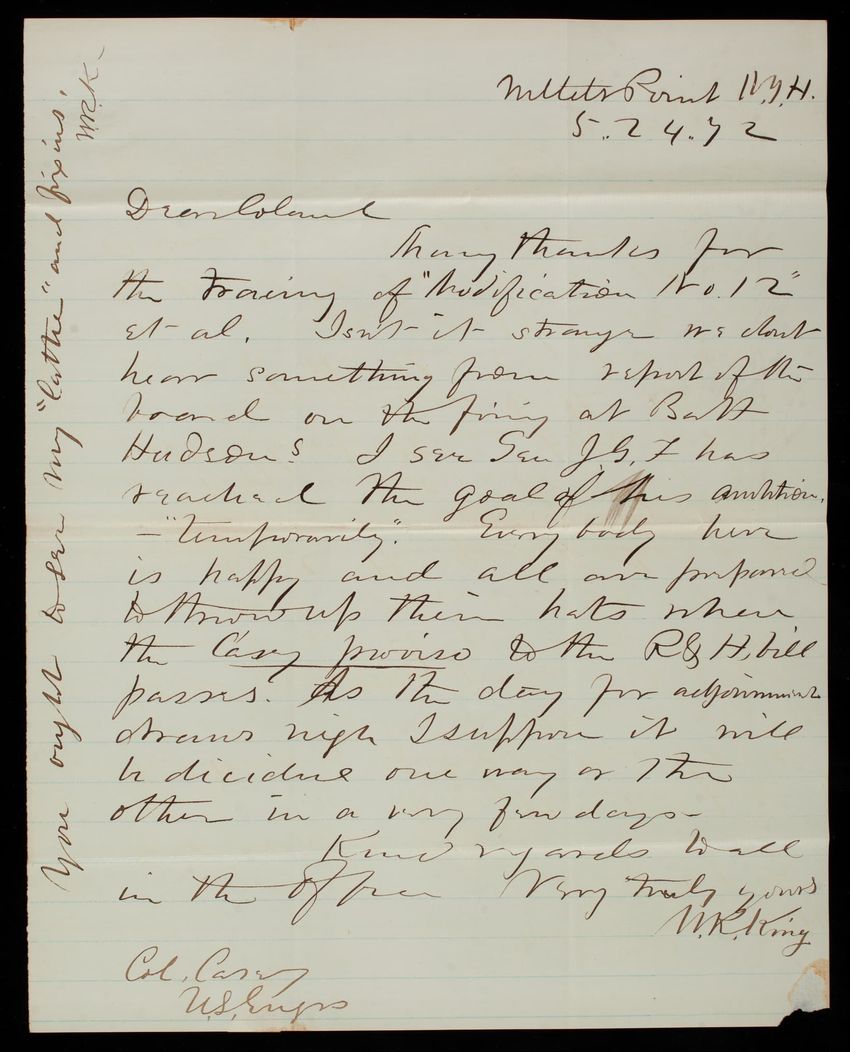 Willets Point N.Y.H.
5.24.72
Dear Colonel
Many thanks for
the tracing of "Modification No. 12"
et al. Isn't it strange we dont
hear something from report of the
board on the firing at Batt
Hudson? I see Gen J.G.F has
reached the goal of his ambition,
- "temporarily". Everybody here
is happy and all are prepared
to throw up their hats when
the Casey proviso to the R & H. bill
passes. As the day for adjournment
draws nigh I suppose it will
be decided one way or the
other in a very few days -
Kind regards to all
in the Office Very truly yours
W.R. King
Col. Casey
U.S. Engrs
You ought to see my "lathe" and fixins'.
W.R.K-